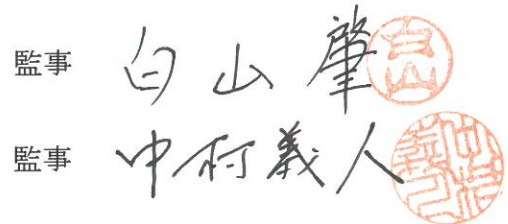 監事 白山 肇
監事 中村義人